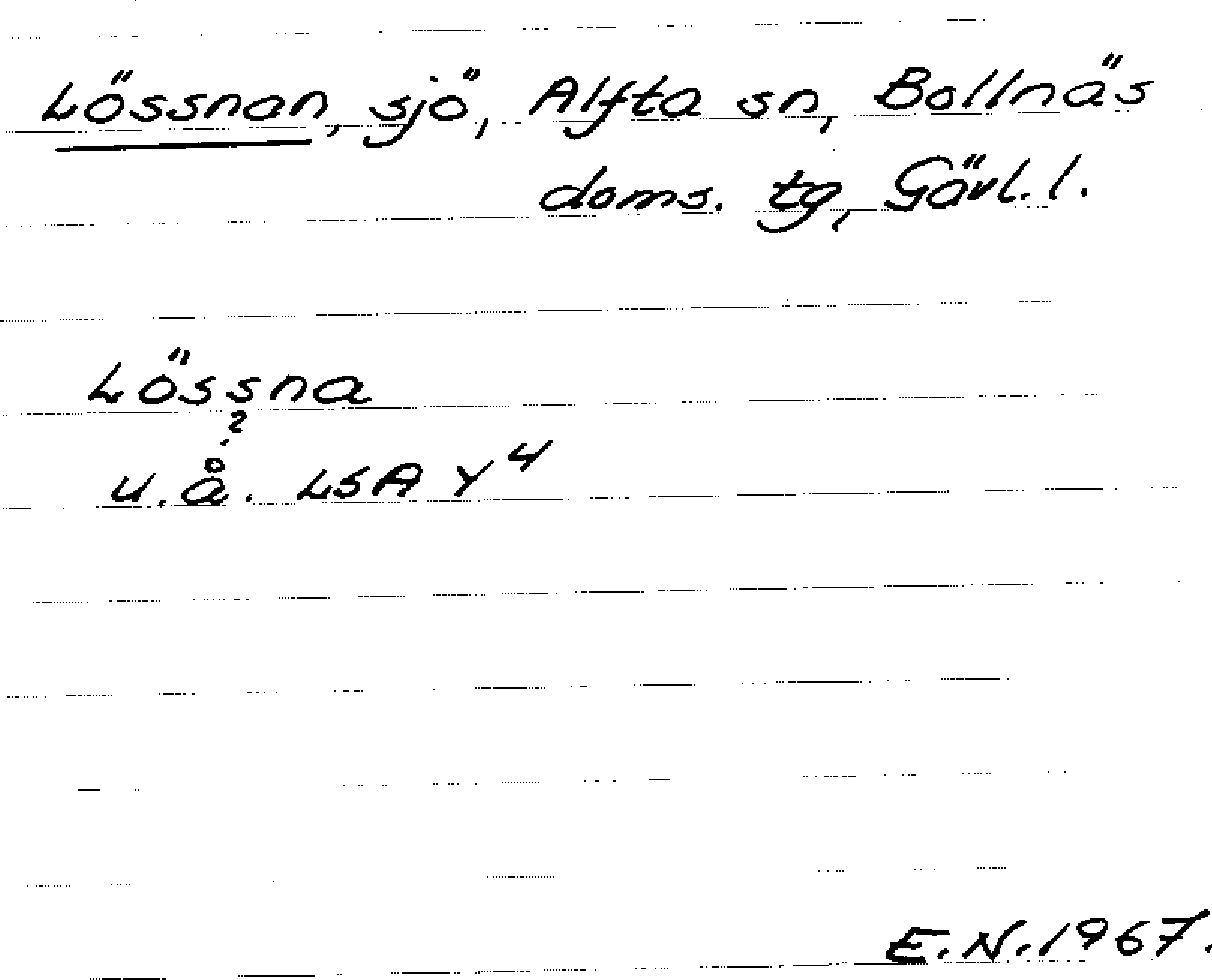 Lössnan, sjö, Alfta sn, Bollnäs
doms. tg, Gävl. l.
Lössna
?
u.å. LSA Y4
E.N. 1967.